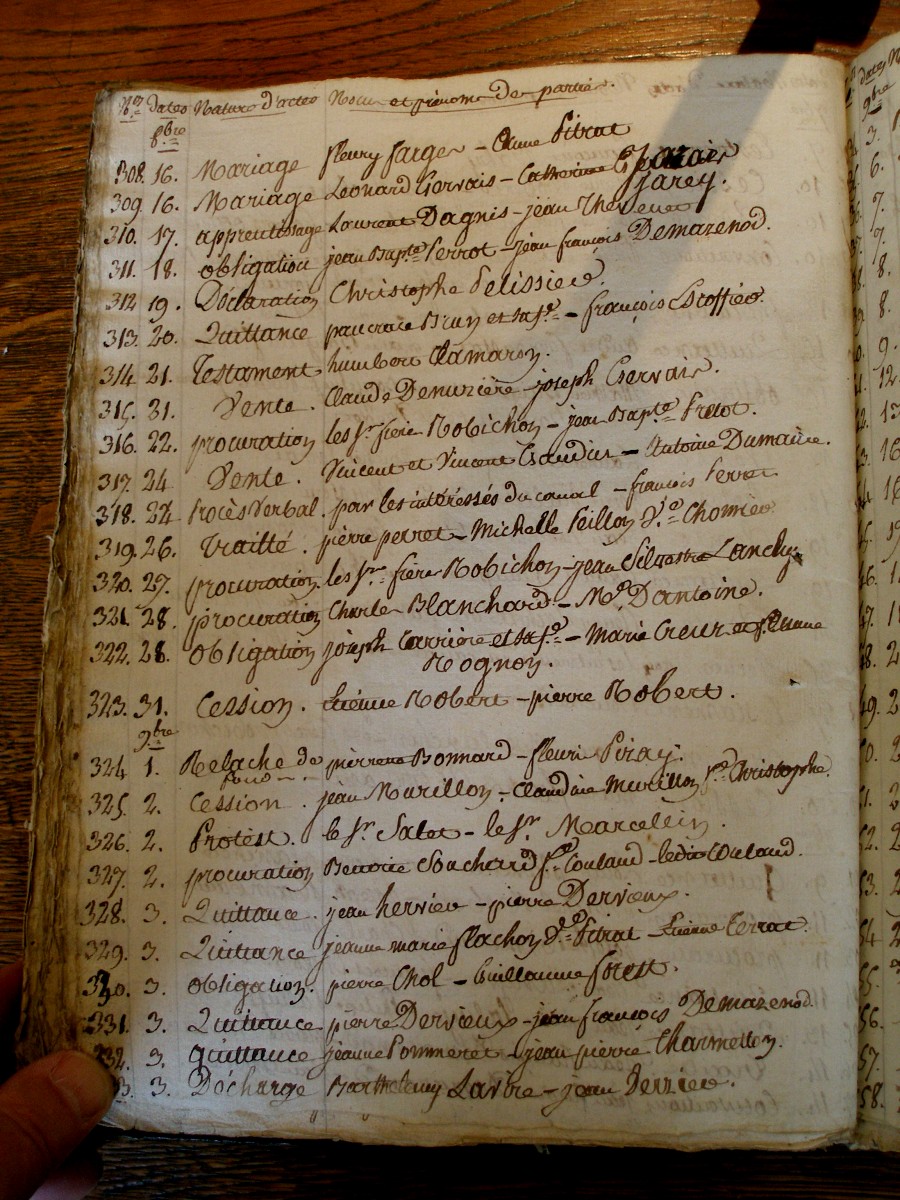 Nos dates Nature d'actes Noms et prénoms des parties.
8bre
308. 16. Mariage fleury farges - Anne Pitrat
309. 16. Mariage Leonard Gervais - Catherine
Jarey.
310. 17. apprentissage Laurent Dagnis - jean Thevenet
311. 18. obligation jean Bapte Perrot - jean françois Demazenod.
312 19. Déclaration Christophe Pelissier.
313. 20. Quittance pancrace Brun et sa fe. - françois Escoffier.
314 21. Testament humbert Clamaron.
315. 21. Vente. Claude Denuzière - joseph Gervais.
316. 22. procuration les Srs frère Robichon - jean Bapte
317. 24 Vente. Vincent et Vincent - Antoine Dumaine.
318. 24 Procès Verbal. par les intéressés du canal - françois Perret
319. 26. Traitté. pierre perret - Michelle Peillon Ve Chomier
320. 27. procuration les Srs frère Robichon - jean Silvestre Lanchy
321. 28. procuration Charles Blanchard - Me. Dantoine.
322. 28. Obligation joseph Carrière et sa fe. - Marie Creur et
Rognon.
323. 31. Cession. Etienne Robert - pierre Robert.
9bre
324 1. Relache de pierre Bonnard - fleuri Piray.
fond
325. 2. Cession. jean Murillon - Claudine Murillon fe Christophe.
326. 2. Protest. le Sr Salet - le Sr Marcellin.
327. 2. procuration Souchard fe. Coulaud - ledit Coulaud.
328. 3. Quittance. jean hervieu - pierre Dervieux.
329. 3. Quittance jeanne marie flachon Ve Pitrat - Etienne Terrat.
330. 3. obligation. pierre Chol - Guillaume forest.
331. 3. Quittance pierre Dervieux - jean françois Demazenod.
332. 3. quittance jeanne Pommeret - jean pierre Charmetton.
3. 3. Décharge Barthelemy Lavire - jean